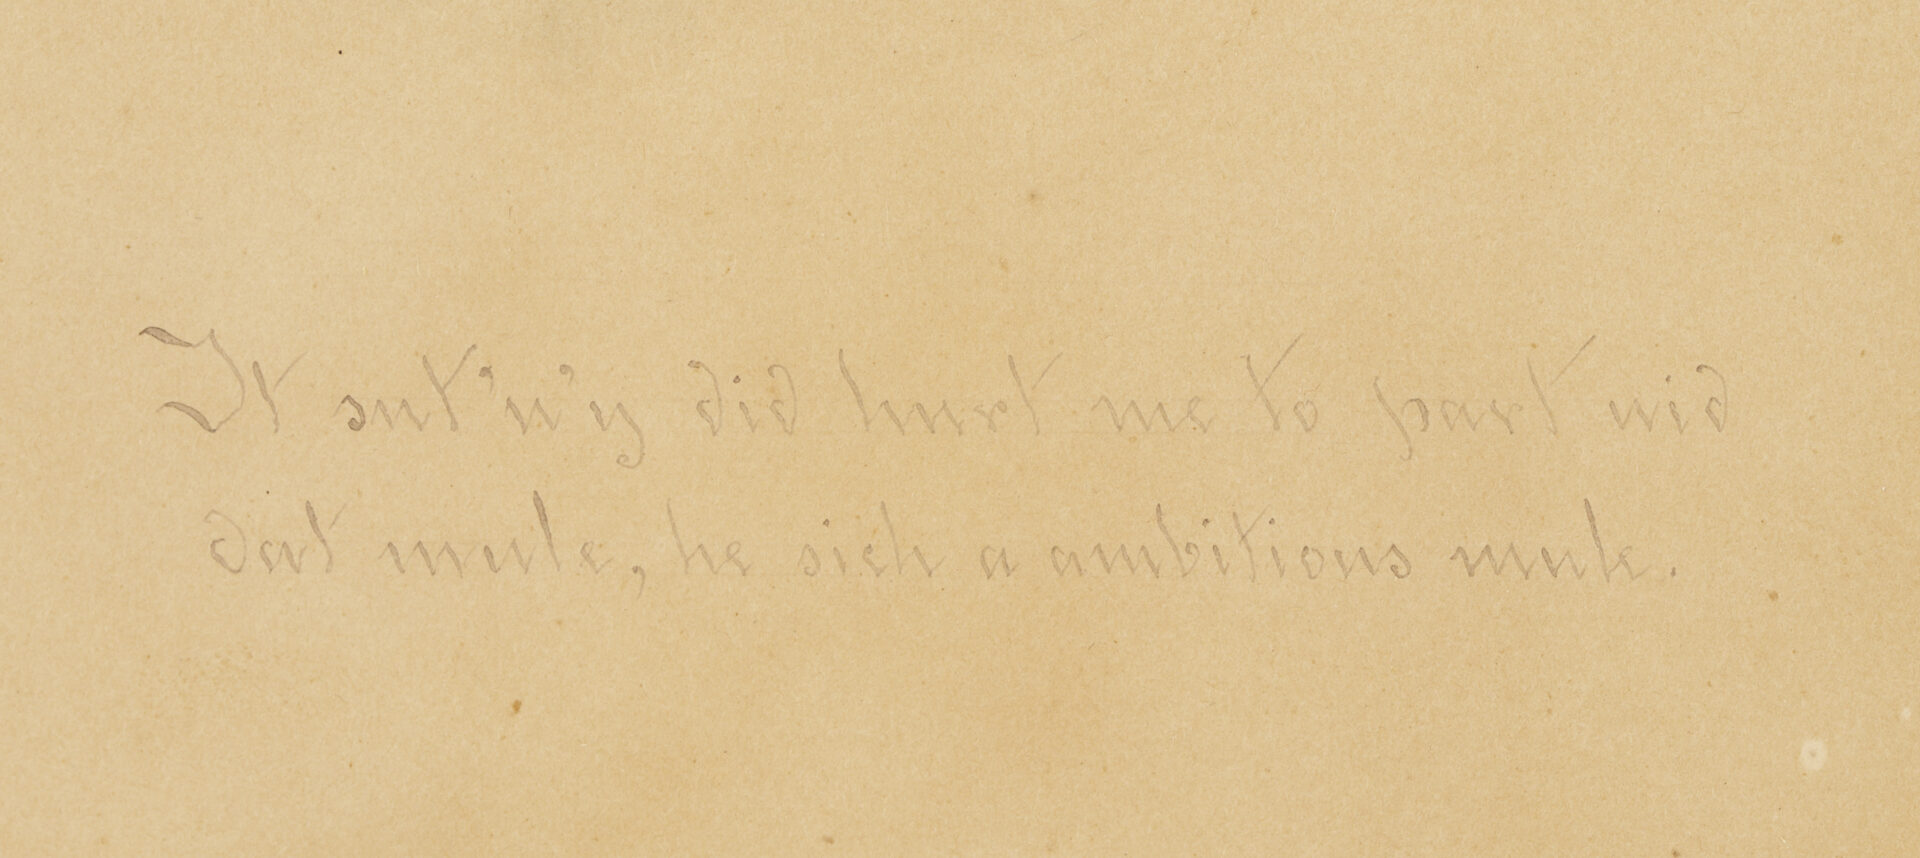 It sut'n'y did hurt me to part wid
dat mule, he sich a ambitious mule.